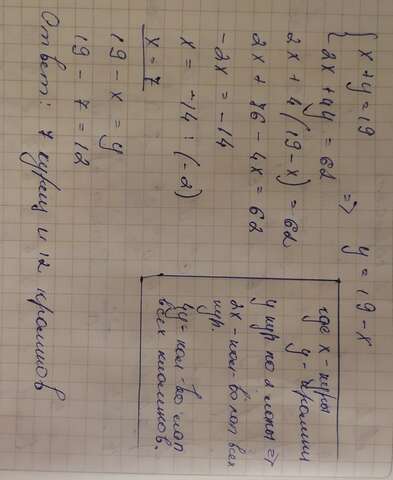 { x + y = 19
2x + 4y = 62 => y = 19 - x
2x + 4(19 - x) = 62
2x + 76 - 4x = 62
-2x = -14
x = -14 : (-2)
x = 7
19 - x = y
19 - 7 = 12
Ответ: 7 куриц и 12 кроликов
где x - куры
y - кролики
у кур по 2 лапы =>
2x - кол-во лап всех
кур.
4y - кол-во лап
всех кроликов.